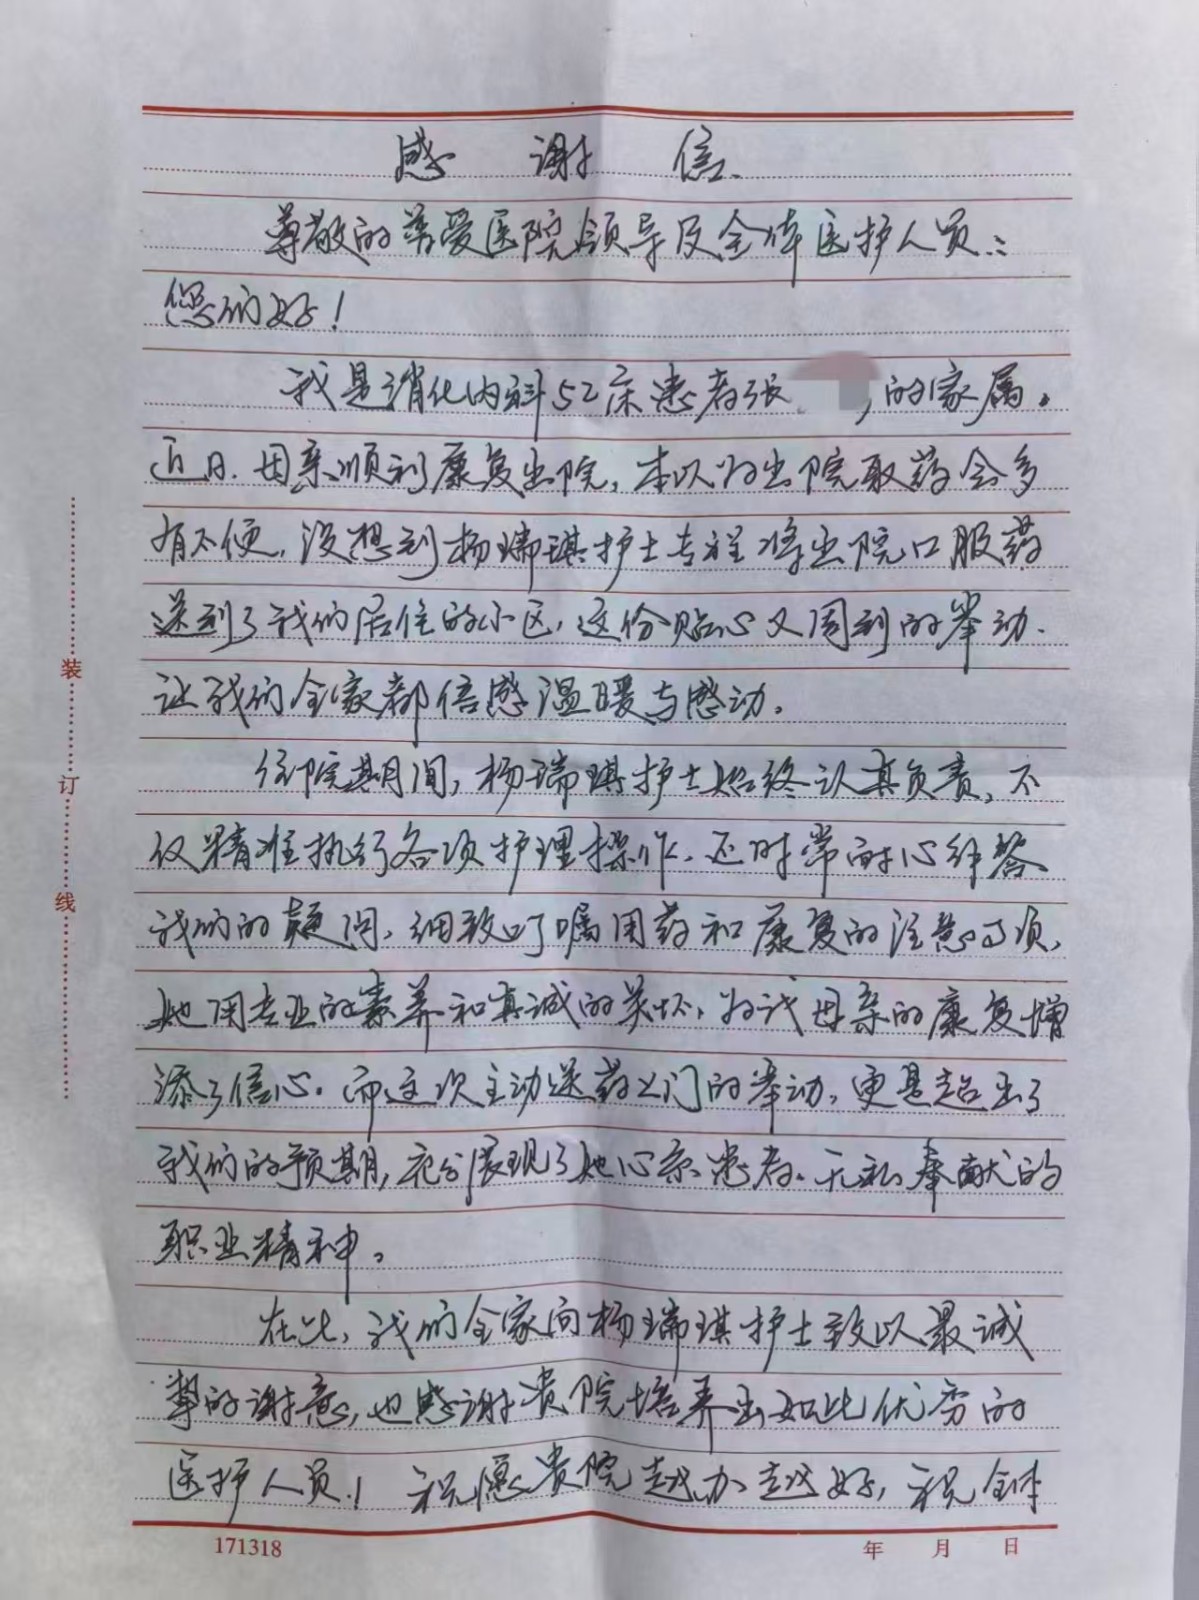 感谢信
尊敬的普爱医院领导及全体医护人员:
您们好!
我是消化内科52床患者张 的家属。
近日.母亲顺利康复出院,本以为出院取药会多
有不便,没想到杨瑞琪护士专程将出院口服药
送到了我们居住的小区,这份贴心又周到的举动.
让我们全家都倍感温暖与感动。
住院期间,杨瑞琪护士始终认真负责,不
仅精准执行各项护理操作,还时常耐心解答
我们的疑问,细致叮嘱用药和康复的注意事项,
她用专业的素养和真诚的关怀,为我母亲的康复增
添了信心。而这次主动送药上门的举动,更是超出了
我们的预期,充分展现了她心系患者、无私奉献的
职业精神。
在此,我们全家向杨瑞琪护士致以最诚
挚的谢意,也感谢贵院培养出如此优秀的
医护人员!祝愿贵院越办越好,祝全体
装
订
线
171318
年 月 日